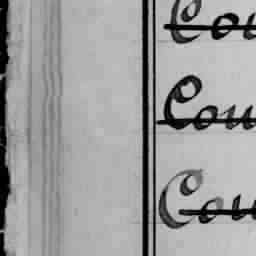 Cou
Cou
Cou